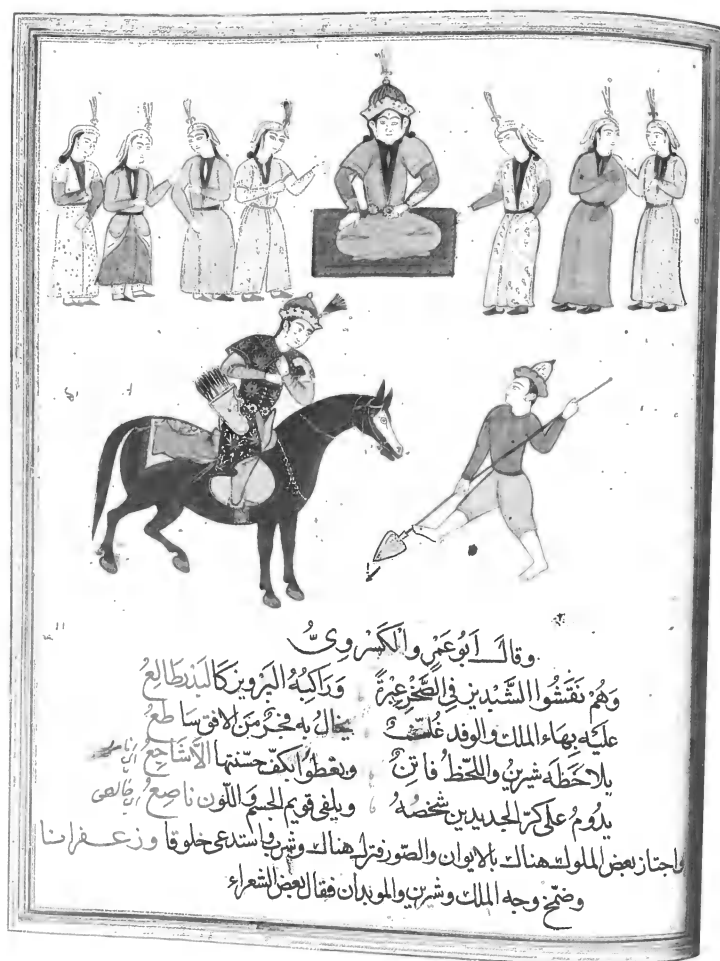 وقال أبو عمرو الكسروي
وهم نقشوا الشبديز في الصخر عبرة وراكبه البرويز كالبدر طالع
عليه بهاء الملك والوفد عكف يخال به فجر من الافق ساطع
يلاحظه شيرين واللحظ فاتن ويعطو بكف حسنتها الأشاجع
يدوم على كر الجديدين شخصه ويلفى قويم الجسم واللون ناصع
واجتاز بعض الملوك هناك بالايوان والصور فنزل هناك وشرب واستدعى خلوقا وزعفرانا
وضمخ وجه الملك وشيرين والموبذان فقال بعض الشعراء